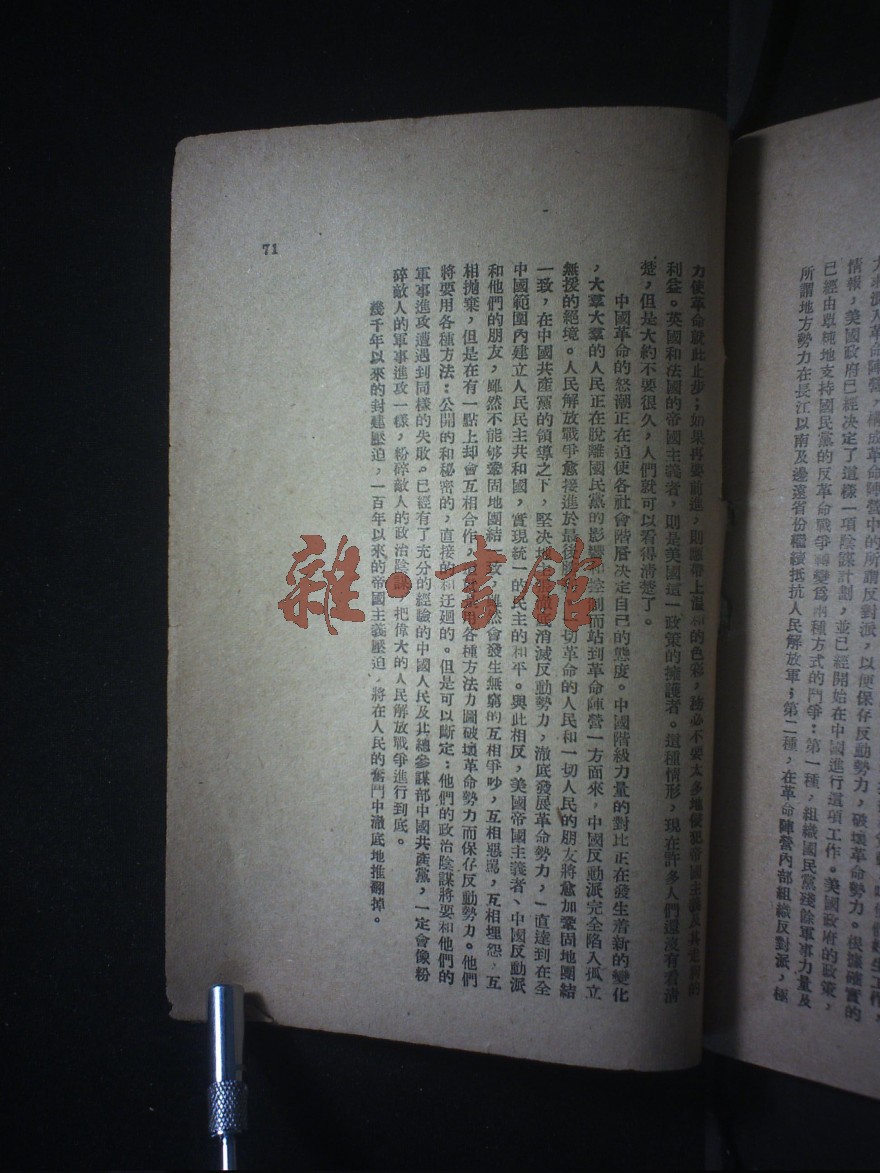 力求混入革命陣營，構成革命陣營中的所謂反對派，以便保存反動勢力，破壞革命勢力。根據確實的
情報，美國政府已經決定了這樣一項陰謀計劃，並已經開始在中國進行這項工作。美國政府的政策，
已經由單純地支持國民黨的反革命戰爭轉變爲兩種方式的鬥爭：第一種，組織國民黨殘餘軍事力量及
所謂地方勢力在長江以南及邊遠省份繼續抵抗人民解放軍；第二種，在革命陣營內部組織反對派，極
力使革命就此止步；如果再要前進，則應帶上溫和的色彩，務必不要太多地侵犯帝國主義及其走狗的
利益。英國和法國的帝國主義者，則是美國這一政策的擁護者。這種情形，現在許多人們還沒有看清
楚，但是大約不要很久，人們就可以看得清楚了。
中國革命的怒潮正在迫使各社會階層决定自己的態度。中國階級力量的對比正在發生着新的變化
，大羣大羣的人民正在脫離國民黨的影響和控制而站到革命陣營一方面來，中國反動派完全陷入孤立
無援的絕境。人民解放戰爭愈接進於最後勝利，一切革命的人民和一切人民的朋友將愈加鞏固地團結
一致，在中國共產黨的領導之下，堅决地主張澈底消滅反動勢力，澈底發展革命勢力，一直達到在全
中國範圍內建立人民民主共和國，實現統一的民主的和平。與此相反，美國帝國主義者、中國反動派
和他們的朋友，雖然不能够鞏固地團結一致，雖然會發生無窮的互相爭吵，互相惡罵，互相埋怨，互
相拋棄，但是在有一點上却會互相合作，用各種方法力圖破壞革命勢力而保存反動勢力。他們
將要用各種方法：公開的和秘密的，直接的和迂迴的。但是可以斷定：他們的政治陰謀將要和他們的
軍事進攻遭遇到同樣的失敗。已經有了充分的經驗的中國人民及其總參謀部中國共產黨，一定會像粉
碎敵人的軍事進攻一樣，粉碎敵人的政治陰謀，把偉大的人民解放戰爭進行到底。
幾千年以來的封建壓迫，一百年以來的帝國主義壓迫，將在人民的奮鬥中澈底地推翻掉。
71
雜·書館